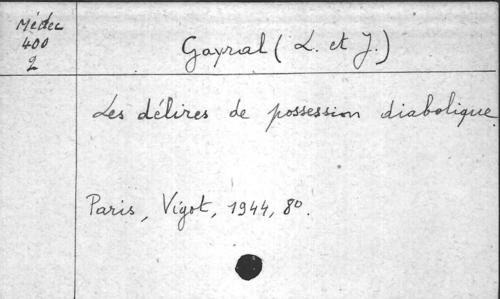 Médec
400
2
Gayral (L. et J.)
Les délires de possession diabolique.
Paris, Vigot, 1944, 8º.